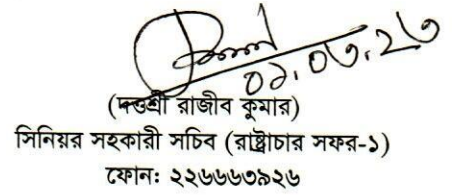 ০১.০৩.২৩
(দণ্ডশ্রী রাজীব কুমার)
সিনিয়র সহকারী সচিব (রাষ্ট্রাচার সফর-১)
ফোন: ২২৬৬৬৩৯২৬